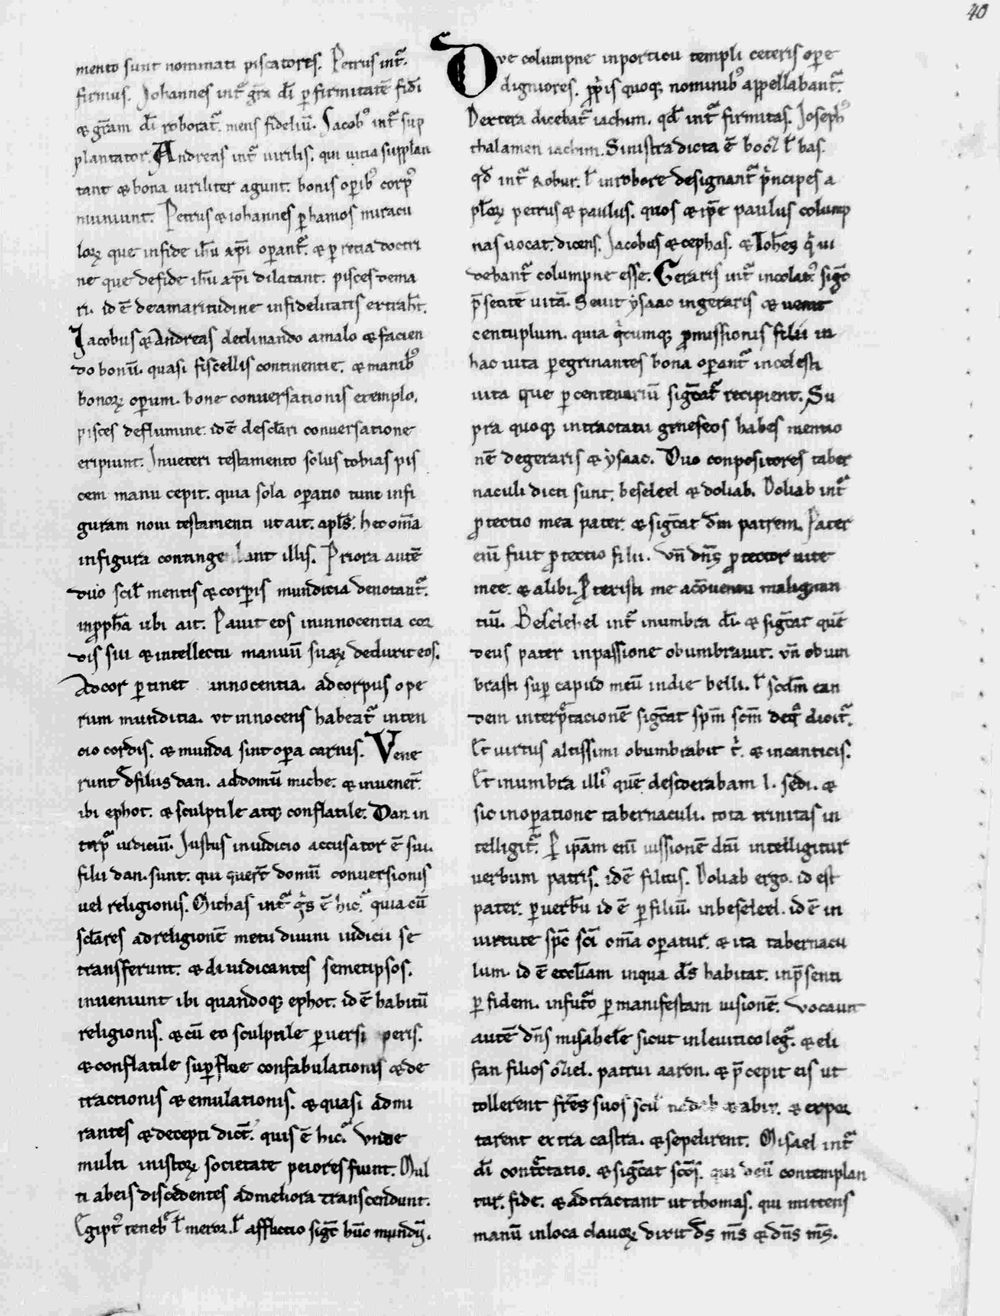 40
mento sunt nominati piscatores. Petrus int̄.
firmus. Johannes int̄ gr̄a dī ꝑ firmitatē fidī
& gr̄am dī roborat̄. mens fidelíū. Jacobꝰ int̄ sup
plantator. Andreas int̄ uirilis. qui uicia supplan
tant & bona uiriliter agunt. bonis oꝑibꝰ corpꝰ
muniunt. Petrus & iohannes ꝑ hamos miracu
loꝝ que infide ihū xp̄i oꝑant̄. & ꝑ retia doctri
ne que defide ihū xp̄i dilatant. pisces de ma
ri. id ē deamaritudine infidelitatis extrah̄t.
Jacobus & Andreas declinando amalo & facien
do bonū. quasi fiscellis continentie. & manibꝰ
bonoꝝ oꝑum. bone conuersationis exemplo.
pisces deflumine. id ē desc̄lari conuersatione
eripiunt. Inueteri testamento solus tobias pis
cem manu cepit. quia sola oꝑatio tunc infi
guram noui testamenti ut ait. apl̄s. hec om̄a
infigura continge bant illis. Priora autē
duo scil̄ mentis & corꝑis mundicia denotant̄.
inpꝓph̄a ubi ait. Pauit eos ininnocentia cor
dis sui & intellectu manuū suaꝝ deduxit eos.
Adcor ꝑtinet innocentia. adcorpus ope
rum mundicia. ut innocens habeat̄ inten
cio cordis. & munda sint oꝑa carnis. Vene
runt filius dan. addomū miche. & inuener̄t.
ibi ephot. & sculptile atqꝫ conflatile. Dan in
iudiciū. Justus iniudicio accusator ē sui.
filii dan. sunt. qui querūt domū conuersionis
uel religionis. Michas int̄ q̄s ē hic. quia cū
sclares adreligionē metu diuini iudicii se
transferunt. & diiudicantes semetipsos.
inueniunt ibi quandoqꝫ ephot. id ē habitū
religionis. & cū eo sculptile ꝑuersi oꝑis.
& conflatile suꝑflue confabulationis & de
tractionis & emulationis. & quasi admi
rantes & decepti dic̄t. quis ē hic. Vnde
multi inistoꝝ societate peiores fiunt. Mul
ti abeis discedentes admeliora transcendunt.
Egiptꝰ tenebꝰ l̄ meror. l̄ afflictio sig̅t hūc mundū.
Due columpne inporticu templi ceteris opere
digniores. ꝓp̄iis quoqꝫ nominibꝰ appellabant̄.
Dextera dicebat̄ iachim. qd̄ int̄ firmitas. Joseph
thalamen iachim. Sinistra dicta ē booz l̄ bas.
qd̄ int̄ Robur. l̄ inrobore designant̄ p̄ncipes a
pl̄oꝝ petrus & paulus. quos & ip̄e paulus colump
nas uocat. dicens. Jacobus & cephas. & Ioh̄es q̄ ui
debant̄ columpne esse. Geraris int̄ incolatꝰ sig̅t
p̄sentē uitā. Seuit ysaac ingeraris & uenit
centuplum. quia q̄cumqꝫ ꝓmissionis filii in
hac uita peregrinantes bona oꝑant̄ incelesti
uita que ꝑ centenariū sig̅cat̄ recipient. Su
pra quoqꝫ intractatu geneseos habes mentio
nē degeraris & ysaac. Duo conpositores taber
naculi dicti sunt. beseleel & doliab. Doliab int̄
ꝓtectio mea pater. & sig̅cat dm̄ patrem. Pater
enī fuit ꝓtectio filii. Vn̄ dn̄s ꝓtector uite
mee. & alibi. Ꝓtexisti me aconuentu malignan
tiū. Beseleel int̄ inumbra dī. & sig̅cat quē
deus pater inpassione obumbrauit. Vn̄ obum
brasti suꝑ capud meū indie belli. l̄ scd̄m ean
dem interp̄tacionē sig̅cat sp̄m sc̄m deq̄ dicit̄.
Et uirtus altissimi obumbrabit t̄. & incanticis.
Et inumbra illiꝰ quē desiderabam l. sedi. &
sic inoꝑatione tabernaculi. tota trinitas in
telligit̄. Ꝑ ip̄am enī iussionē dm̄ intelligitur
uerbum patris. id ē filius. Doliab ergo. id est
pater. ꝑ uerbū id ē ꝑ filiū. inbeseleel. id ē in
uirtute sp̄c sc̄i om̄a oꝑatur. & ita tabernacu
lum. id ē eccl̄iam inqua ds̄ habitat. inp̄senti
ꝑ fidem. infut̄o ꝑ manifestam uisionē. Vocauit
autē dn̄s misahele sicut inleuitico leg̅t. & eli
fan filios oziel. patrui aaron. & p̄cepit eis ut
tollerent fr̄es suos scil̄ nadab & abiu. & expor
tarent extra castra. & sepelirent. Misael int̄
dī contr̄ctatio. & sig̅cat sc̄os. qui deū contemplan
tur. fide. & adtractant ut thomas. qui mittens
manū inloca clauoꝝ dixit ds̄ ms̄ & dn̄s ms̄.